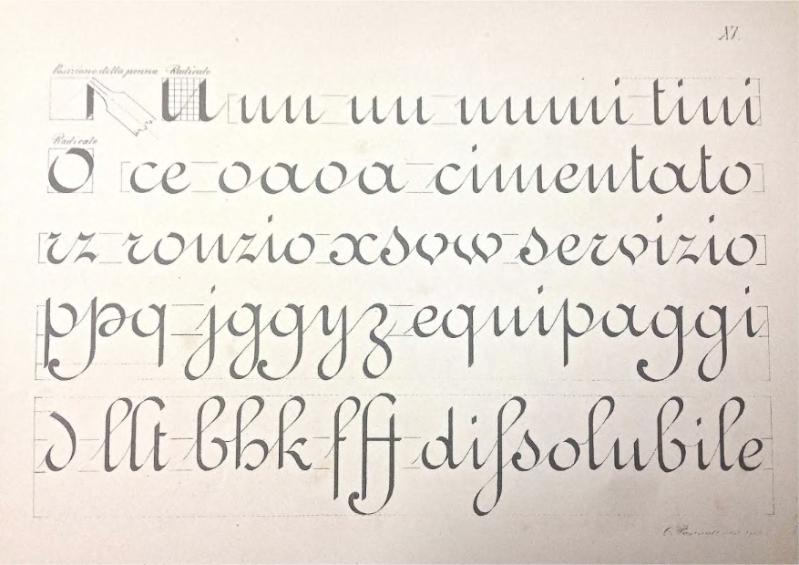 XI.
Posizione della penna Radicale
u uu uu uumi tiui
Radicale
o ce oaoa cimentato
rz ronzio xsvw servizio
ppq jggyz equipaggi
d llt bhk fſſ diſsolubile